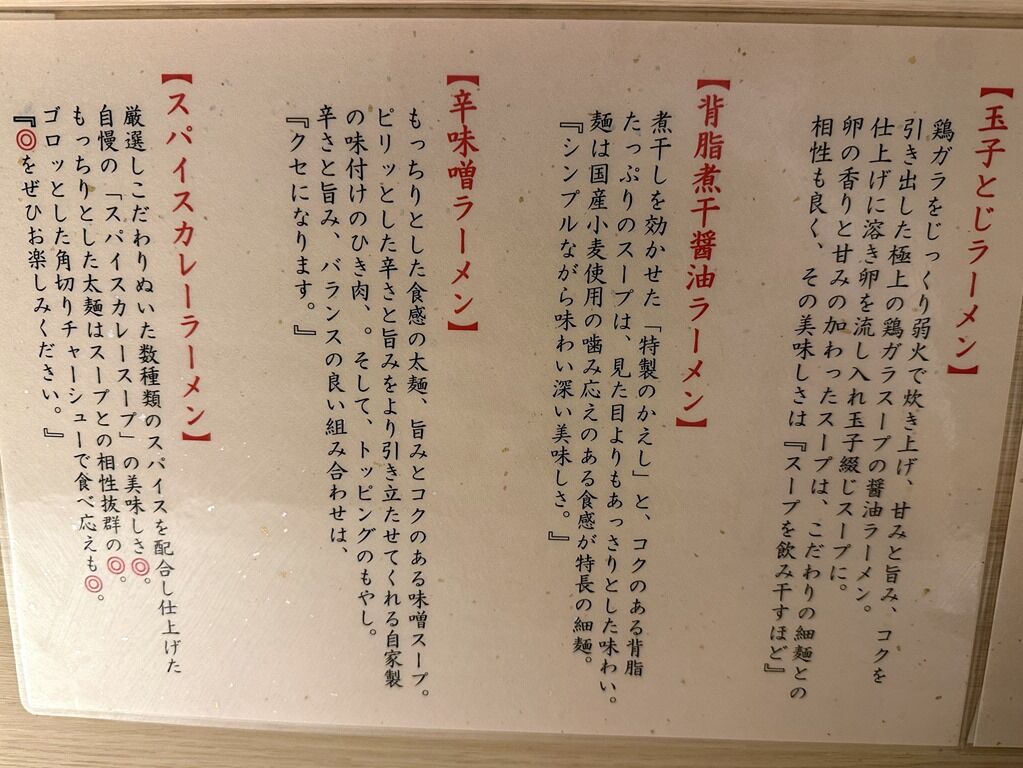 【玉子とじラーメン】
鶏ガラをじっくり弱火で炊き上げ、甘みと旨み、コクを
引き出した極上の鶏ガラスープの醤油ラーメン。
仕上げに溶き卵を流し入れ玉子綴じスープに。
卵の香りと甘みの加わったスープは、こだわりの細麺との
相性も良く、その美味しさは『スープを飲み干すほど』
【背脂煮干醤油ラーメン】
煮干しを効かせた「特製のかえし」と、コクのある背脂
たっぷりのスープは、見た目よりもあっさりとした味わい。
麺は国産小麦使用の噛み応えのある食感が特長の細麺。
『シンプルながら味わい深い美味しさ。』
【辛味噌ラーメン】
もっちりとした食感の太麺、旨みとコクのある味噌スープ。
ピリッとした辛さと旨みをより引き立たせてくれる自家製
の味付けのひき肉、。そして、トッピングのもやし。
辛さと旨み、バランスの良い組み合わせは、
『クセになります。』
【スパイスカレーラーメン】
厳選しこだわりぬいた数種類のスパイスを配合し仕上げた
自慢の「スパイスカレースープ」の美味しさ◎。
もっちりとした太麺はスープとの相性抜群の◎。
ゴロッとした角切りチャーシューで食べ応えも◎。
『◎をぜひお楽しみください。』